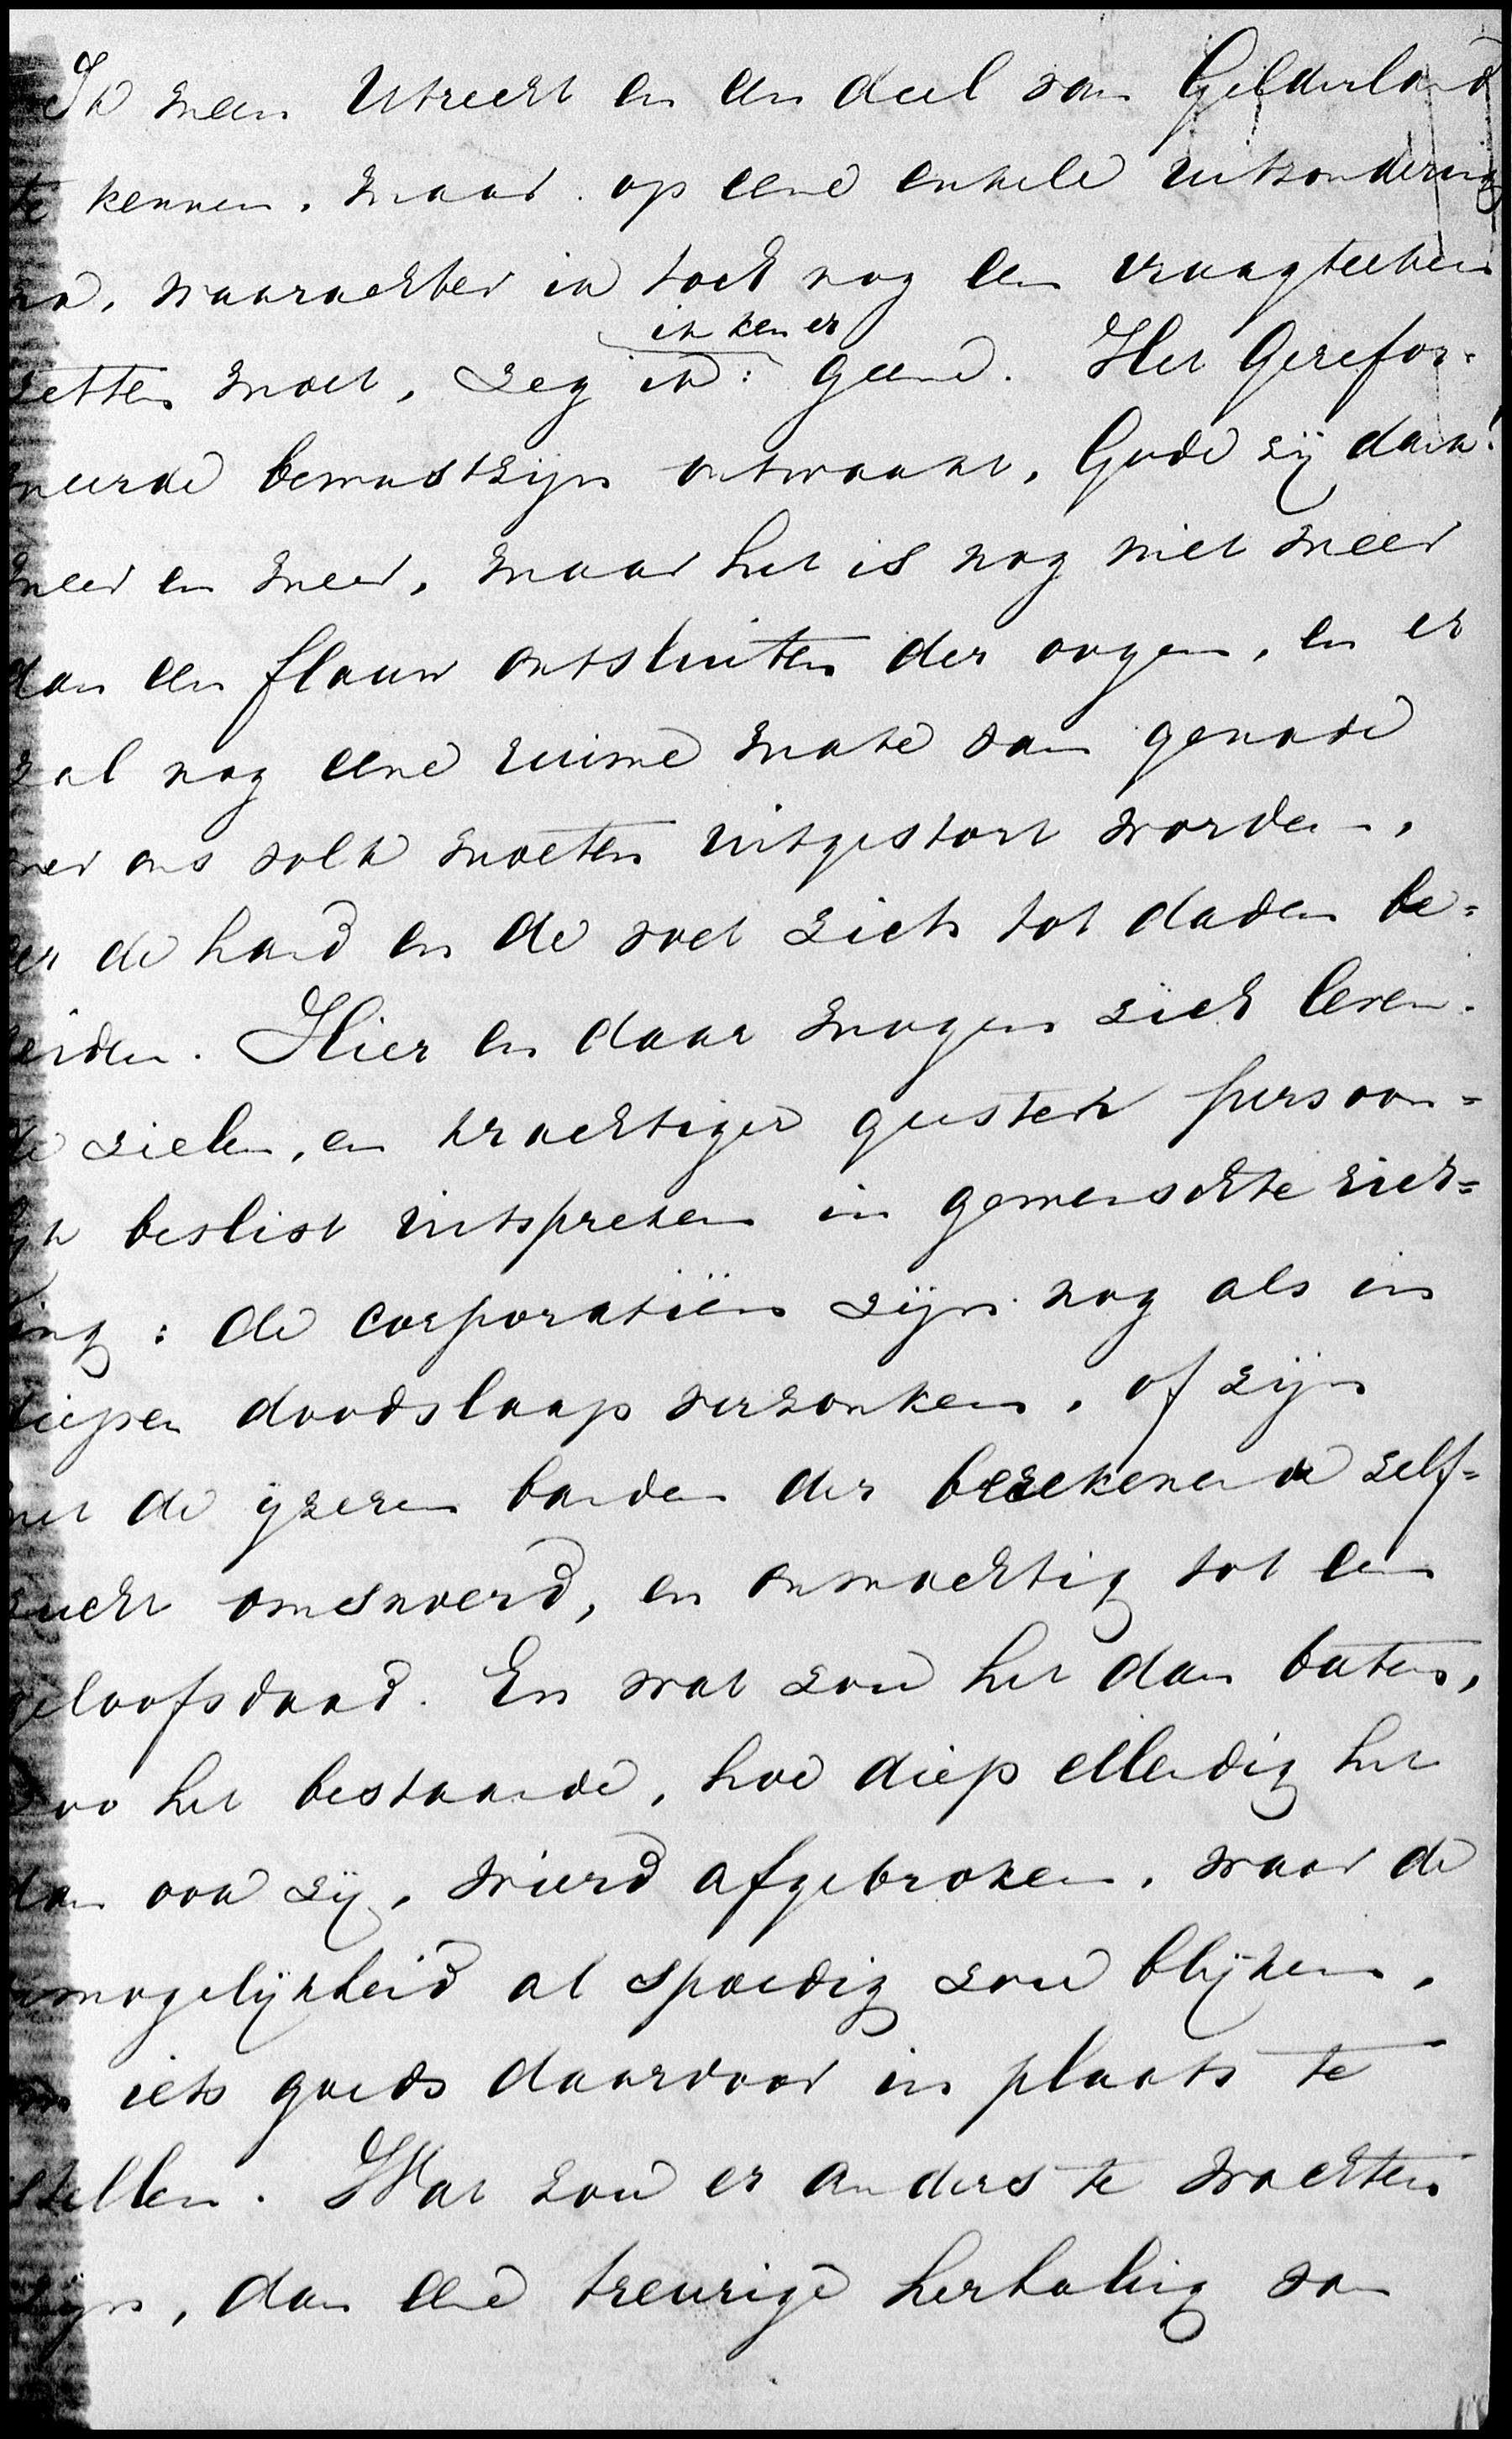 Ik meen Utrecht en een deel van Gelderland
te kennen, maar op eene enkele uitzondering
na, waarachter ik toch nog een vraagteeken
ik ken er
zetten moet, zeg ik: geene. Het Gerefor=
meerde bewustzijn ontwaakt, Gode zij dank!
meer en meer, maar het is nog niet meer
dan een flauw ontsluiten der oogen, en er
zal nog eene ruime mate van genade
over ons volk moeten uitgestort worden,
eer de hand en de voet zich tot daden be=
reiden. Hier en daar mogen zich leven-
de zielen, en krachtiger geesten persoon=
lijk beslist uitspreken in gewenschte rich=
ting: de corporatiën zijn nog als in
diepen doodslaap verzonken, of zijn
met de ijzeren banden der berekenende zelf=
zucht omsnoerd, en onmachtig tot een
geloofsdaad. En wat zou het dan baten,
zoo het bestaande, hoe diep ellendig het
dan ook zij, wierd afgebroken, waar de
onmogelijkheid al spoedig zou blijken,
om iets goeds daarvoor in plaats te
stellen. Wat zou er anders te wachten
zijn, dan eene treurige herhaling van